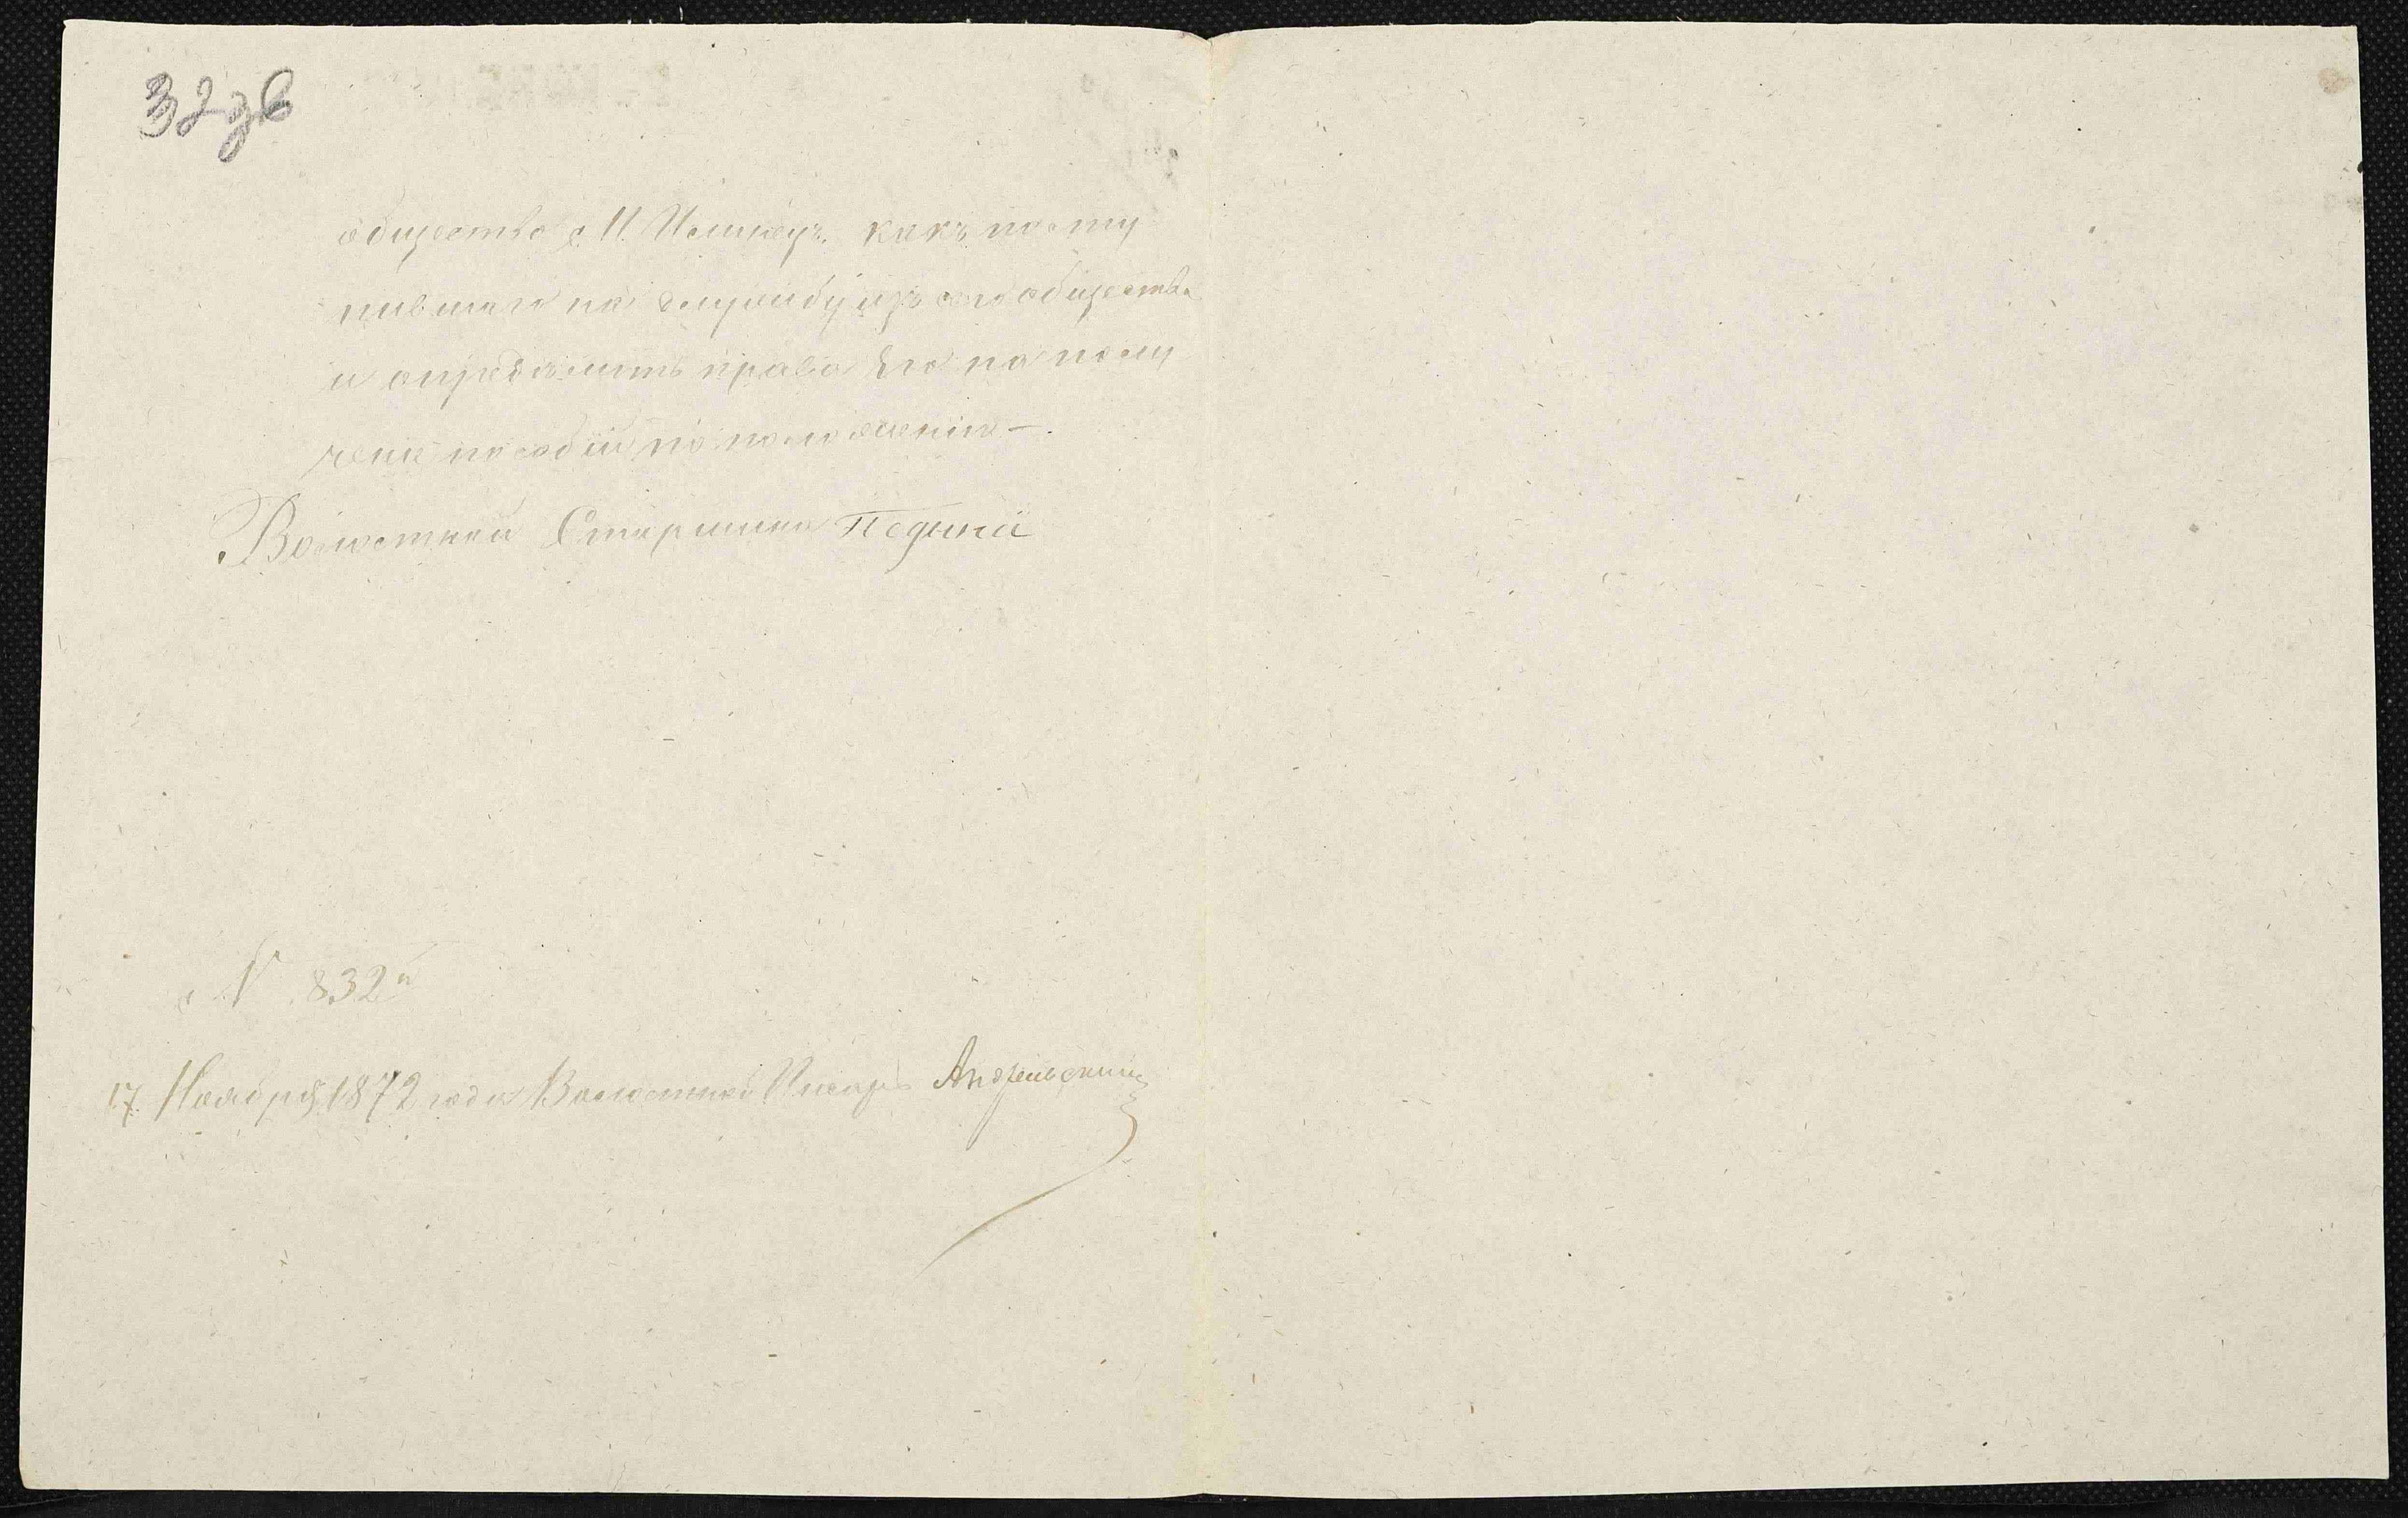 32 зв
общество с. М. какъ посту
пившаго на службу изъ сего общества
и определить право Его на полу
чение пособий по положению —.
Волостной Старшина
№ 832й
17 Ноября 1872 года Волостной Писарь